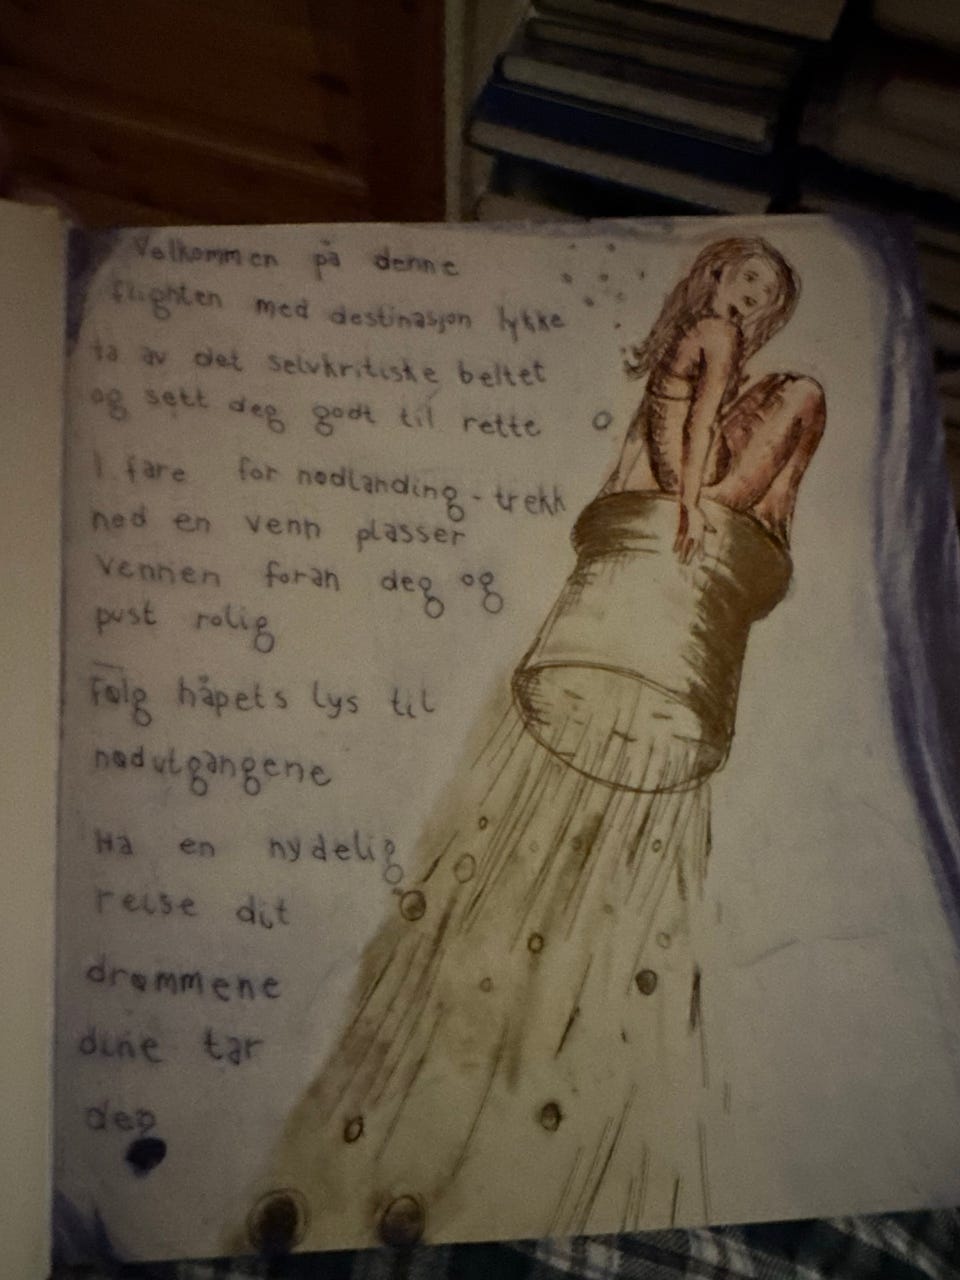 Velkommen på denne
flighten med destinasjon lykke
ta av det selvkritiske beltet
og sett deg godt til rette
I fare for nødlanding - trekk
ned en venn plasser
vennen foran deg og
pust rolig
Følg håpets lys til
nødutgangene
Ha en nydelig
reise dit
drømmene
dine tar
deg